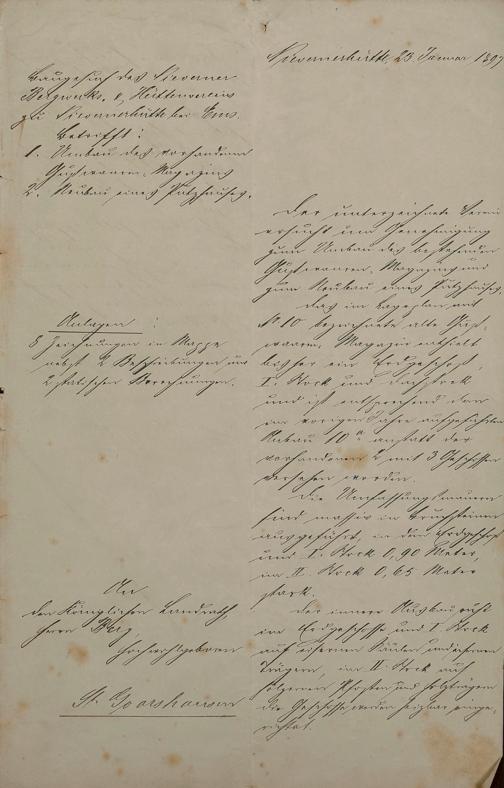 Nievernerhütte, 23. Januar 1897
Baugesuch des Nieverner
Bergwerks- u. Hüttenvereins
zu Nievernerhütte bei Ems.
Betrifft:
1. Umbau des vorhandenen
Gußwaaren-Magazins
2. Neubau eines Putzhauses.
Anlagen:
5 Zeichnungen in Mappe
nebst 2 Beschreibungen und
2 statischen Berechnungen.
An
den Königlichen Landrath,
Herrn Berg,
Hochwohlgeboren
St. Goarshausen
Der unterzeichnete Verein
ersucht um Genehmigung
zum Umbau des bestehenden
Gußwaaren-Magazins und
zum Neubau eines Putzhauses.
Das im Lageplan mit
No 10 bezeichnete alte Guß-
waaren-Magazin enthielt
bisher ein Erdgeschoß,
I. Stock und Dachstock
und ist entsprechend dem
im vorigen Jahre aufgeführten
Anbau 10a anstatt der
vorhandenen 2 mit 3 Geschossen
versehen worden.
Die Umfassungsmauern
sind massiv in Bruchsteinen
ausgeführt, in dem Erdgeschoß
und I. Stock 0,90 Meter,
im II. Stock 0,65 Meter
stark.
Der innere Ausbau ruht
im Erdgeschosse und I. Stock
auf eisernen Säulen und eisernen
Trägern, im II. Stock auf
hölzernen Pfosten und Holzträgern
die Geschosse werden heizbar einge-
richtet.